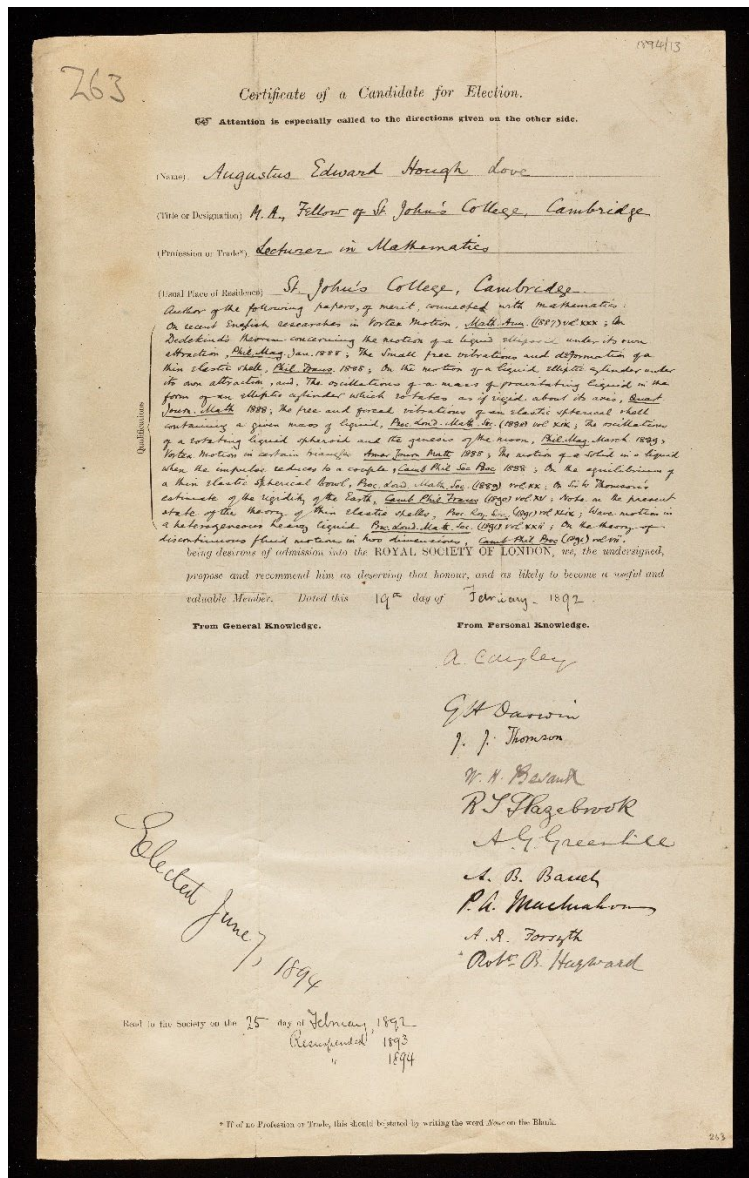 1894/13
263
Certificate of a Candidate for Election.
☞ Attention is especially called to the directions given on the other side.
(Name) Augustus Edward Hough Love
(Title or Designation) M.A., Fellow of St John's College, Cambridge
(Profession or Trade*) Lecturer in Mathematics
(Usual Place of Residence) St. John's College, Cambridge
Qualifications
Author of the following papers, of merit, connected with mathematics:
On recent English researches in Vortex Motion, Math. Ann. (1887) vol xxx; On
Dedekind's theorem concerning the motion of a liquid ellipsoid under its own
attraction, Phil. Mag. Jan. 1888; The small free vibrations and deformation of a
thin elastic shell, Phil. Trans. 1888; On the motion of a liquid elliptic cylinder under
its own attraction, and, The oscillations of a mass of gravitating liquid in the
form of an elliptic cylinder which rotates, as if rigid, about its axis, Quart
Journ. Math 1888; The free and forced vibrations of an elastic spherical shell
containing a given mass of liquid, Proc. Lond. Math. Soc. (1888) vol xix; The oscillations
of a rotating liquid spheroid and the genesis of the moon, Phil. Mag. March 1889;
Vortex Motion in certain triangles Amer Journ Math 1888; The motion of a solid in a liquid
when the impulse reduces to a couple, Camb Phil Soc Proc 1888; On the equilibrium of
a thin elastic spherical bowl, Proc. Lond. Math. Soc. (1889) vol xx; On Sir W Thomson's
estimate of the rigidity of the Earth, Camb Phil Trans (1890) vol XV; Note on the present
state of the theory of thin elastic shells, Proc Roy. Soc. (1891) vol xlix; Wave motion in
a heterogeneous heavy liquid Proc. Lond. Math. Soc. (1891) vol xxii; On the theory of
discontinuous fluid motions in two dimensions, Camb Phil Proc (1891) vol vii.
being desirous of admission into the ROYAL SOCIETY OF LONDON, we, the undersigned,
propose and recommend him as deserving that honour, and as likely to become a useful and
valuable Member. Dated this 19th day of February 1892
From General Knowledge. From Personal Knowledge.
A. Cayley
G H Darwin
J. J. Thomson
W. H. Besant
R T Glazebrook
A. G. Greenhill
A. B. Basset
P. A. MacMahon
A. R. Forsyth
Robt. B. Hayward
Elected June 7, 1894
Read to the Society on the 25 day of February, 1892
Resuspended 1893
" 1894
* If of no Profession or Trade, this should be stated by writing the word None on the Blank.
263